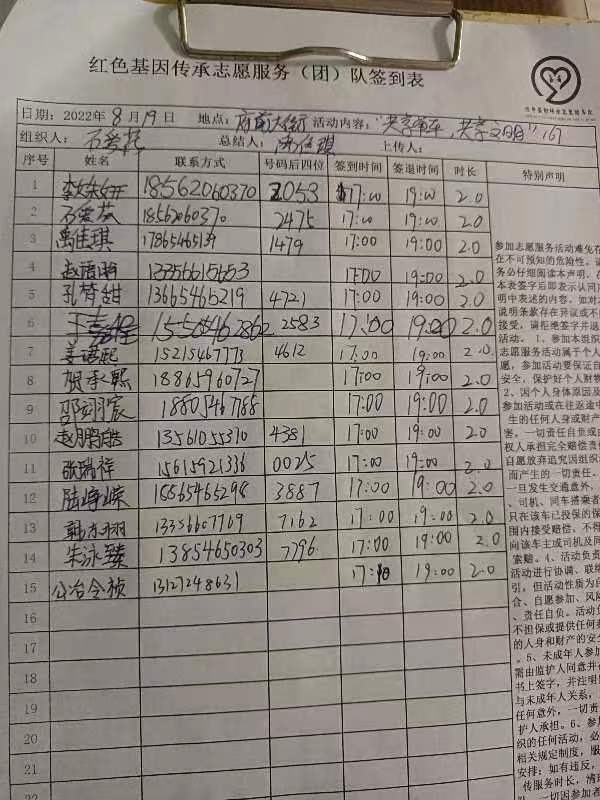 红色基因传承志愿服务（团）队签到表
日期：2022年8月19日 地点：府前大街 活动内容："共享单车，共享文明" 167
组织人： 总结人： 上传人：
序号 姓名 联系方式 号码后四位 签到时间 签退时间 时长 特别声明
1 18562060370 2053 17:00 19:00 2.0
2 18562060370 2475 17:00 19:00 2.0
3 禹佳琪 17865465139 1479 17:00 19:00 2.0
4 13356615653 17:00 19:00 2.0
5 孔梦甜 13665465219 4721 17:00 19:00 2.0
6 2583 17:00 19:00 2.0
7 15215467773 4612 17:00 19:00 2.0
8 贺承熙 18865960727 17:00 19:00 2.0
9 邵翊宸 18805467188 17:00 19:00 2.0
10 赵鹏皓 13561055310 4381 17:00 19:00 2.0
11 张瑞祥 15615921336 0025 17:00 19:00 2.0
12 陆峥嵘 15565465298 3887 17:00 19:00 2.0
13 13356607769 7162 17:00 19:00 2.0
14 朱泳臻 13854650303 7796 17:00 19:00 2.0
15 公冶令祯 13127248631 17:10 19:00 2.0
16
17
18
19
20
21
22
参加志愿服务活动难免存
在不可预知的危险性，
务必仔细阅读本声明，在
本表签字后即表示认同
明中表述的内容，如对
说明条款存在异议或不
接受，请拒绝签字并退
活动。 1、参加本组织
志愿服务活动属于个人
愿，参加活动要保证自
安全，保护好个人财物
2、因个人身体原因及
参加活动或在往返途中
生的任何人身或财产
害，一切责任自负或由
权人承担完全赔偿责任
自愿放弃追究因组织
而产生的一切责任。
一旦发生交通意外，
、司机、同车搭乘者
只在该车已投保的保
围内接受赔偿，不得
向该车主或司机及同
索赔。4、活动负责
活动进行协调、联络
引，但活动性质为自
合、自愿参加、风险
、责任自负。活动负
不担保或提供任何
的人身和财产的安全
。5、未成年人参加
需由监护人同意并在
书上签字，并注明
与未成年人关系，
任何意外，一切责
护人承担。6、参加
织的任何活动，必
相关规定制度，服
安排；如有违反，
传服务时长，情
一切因参加者